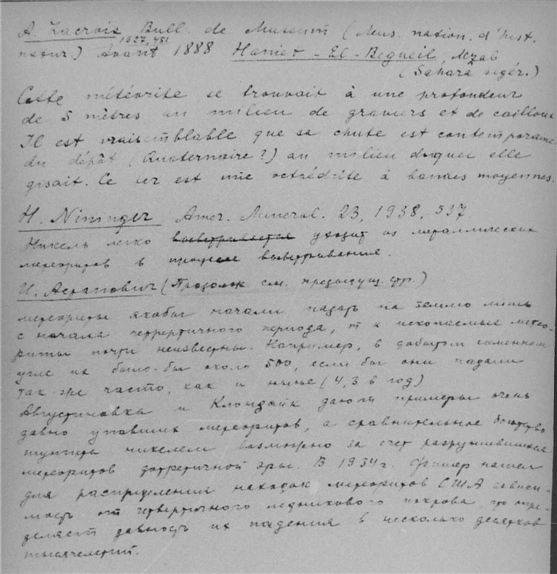 A. Lacroix Bull. de Museum (Mus. nation. d'hist.
natur.) 1927, 451 Avant 1888 Haniet-El-Begueil, Mzab
(Sahara algér.)
Cette météorite se trouvait à une profondeur
de 5 mètres au milieu de graviers et de cailloux
Il est vraisemblable que se chute est contemporaine
du dépôt (Quaternaire?) au milieu duquel elle
gisait. Ce fer est une octrédrite à bandes moyennes.
H. Nininger Amer. Mineral. 23, 1938, 537
Никель легко выветривается уходит из металлических
метеоритов в процессе выветривания.
И. Астапович (Продолж. см. предыдущ. стр.)
метеориты якобы начали падать на землю лишь
с начала третичного периода, т.к ископаемые метео-
риты почти неизвестны. Например, в добытом каменном
угле их было бы около 500, если бы они падали
так же часто, как и ныне (4,3 в год)
Августиновка и Клондайк дают примеры очень
давно упавших метеоритов, а сравнительное богатство
никелем возможно за счет разрушившихся
метеоритов дотретичной эры. В 1934г. нашел
для распределения находок метеоритов США зависи-
мость от четвертичного ледникового покрова, что опре-
деляет давность их падения в несколько десятков
тысячелетий.